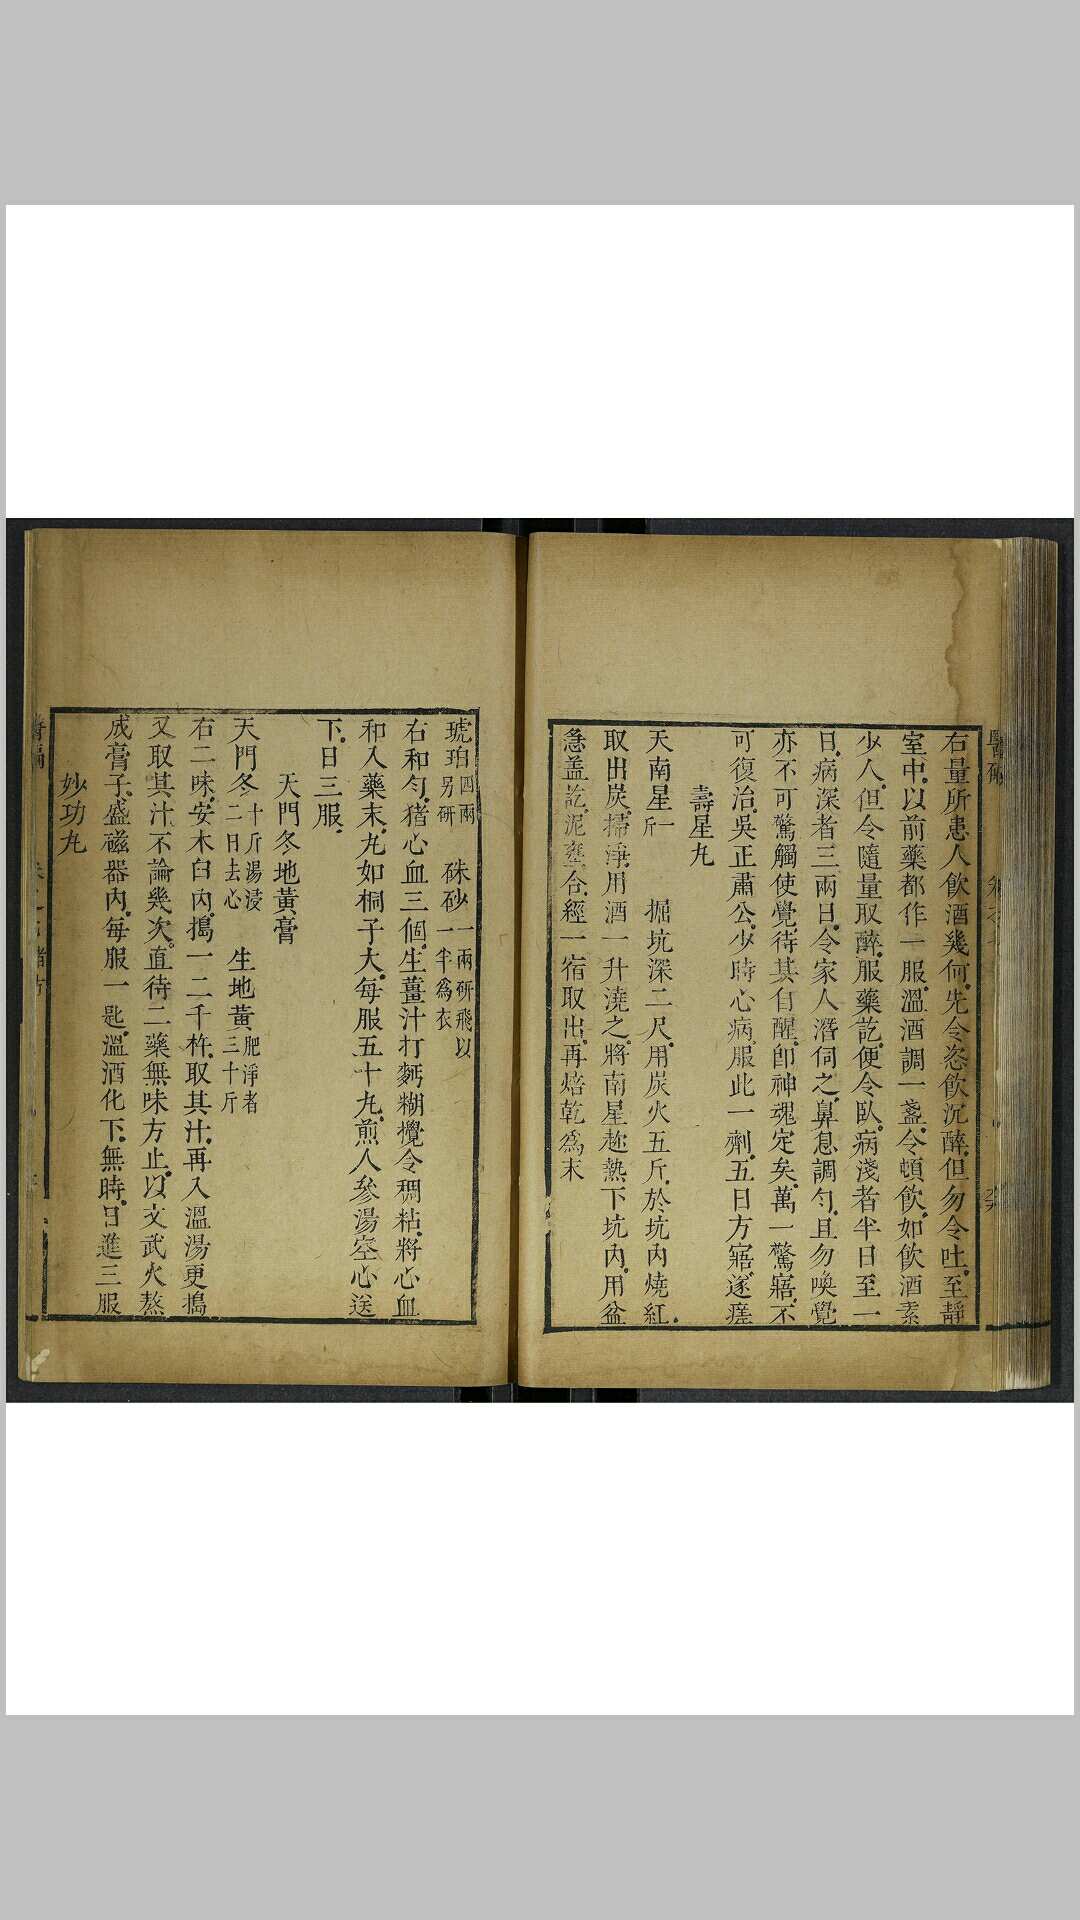 右量所患人飲酒幾何。先令恣飲沉醉。但勿令吐。至靜
室中。以前藥都作一服。溫酒調一盞。令頓飲。如飲酒素
少人。但令隨量取醉。服藥訖。便令臥。病淺者半日至一
日。病深者三兩日。令家人潛伺之。鼻息調勻。且勿喚覺
亦不可驚觸使覺。待其自醒。卽神魂定矣。萬一驚寤。不
可復治。吳正肅公。少時心病。服此一劑。五日方寤。遂瘥
壽星丸
天南星一斤 掘坑深二尺。用炭火五斤。於坑內燒紅。
取出炭。掃淨。用酒一升澆之。將南星趂熱下坑內。用盆
急盖訖。泥壅合。經一宿取出。再焙乾為末
琥珀四兩另研 硃砂一兩研飛以一半為衣
右和勻。猪心血三個。生薑汁打麪糊攪令稠粘。將心血
和入藥末。丸如桐子大。每服五十丸。煎人參湯空心送
下。日三服。
天門冬地黃膏
天門冬十斤湯浸二日去心 生地黃肥淨者三十斤
右二味。安木臼內。搗一二千杵。取其汁。再入溫湯更搗
又取其汁。不論幾次。直待二藥無味方止。以文武火熬
成膏子。盛磁器內。每服一匙。溫酒化下。無時。日進三服
妙功丸